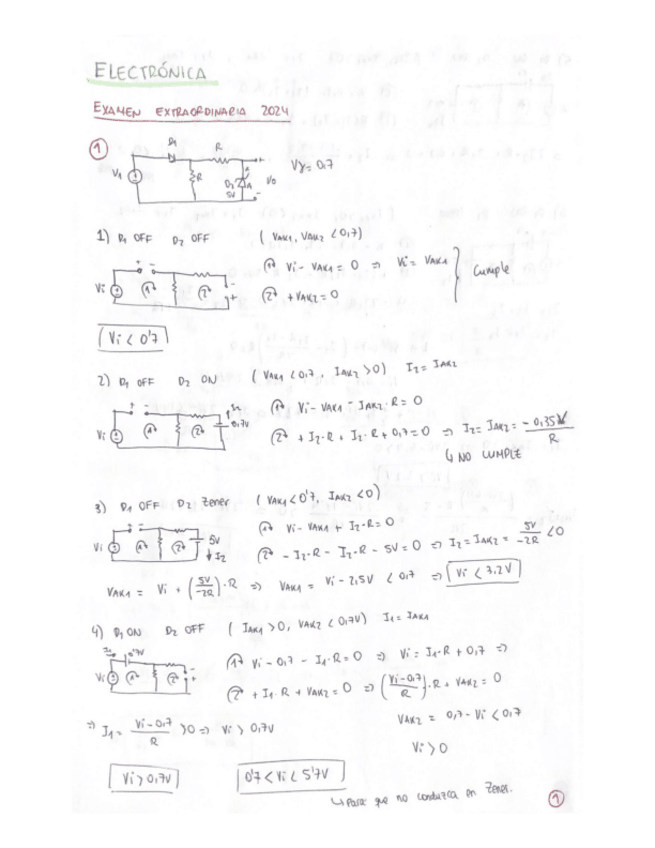 ELECTRÓNICA
EXAMEN EXTRAORDINARIA 2024
1
D1 R
Vγ = 0,7
Vi R D2 5V A Vo
1) D1 OFF D2 OFF ( VAK1, VAK2 < 0,7)
1 Vi - VAK1 = 0 ⇒ Vi = VAK1
Cumple
Vi 1 2
2 + VAK2 = 0
Vi < 0'7
2) D1 OFF D2 ON ( VAK1 < 0,7 , IAK2 > 0) I2 = IAK2
1 Vi - VAK1 - IAK2 · R = 0
Vi 1 2 I2 0,7V
2 + I2 · R + I2 · R + 0,7 = 0 ⇒ I2 = IAK2 = - 0,35V / R
↳ NO CUMPLE
3) D1 OFF D2 Zener ( VAK1 < 0'7, IAK2 < 0)
1 Vi - VAK1 + I2·R = 0
Vi 1 2 5V I2
2 - I2·R - I2·R - 5V = 0 ⇒ I2 = IAK2 = 5V / -2R < 0
VAK1 = Vi + (5V / -2R) · R ⇒ VAK1 = Vi - 2,5V < 0,7 ⇒ Vi < 3,2V
4) D1 ON D2 OFF ( IAK1 > 0, VAK2 < 0,7V) I1 = IAK1
I1 0'7V
1 Vi - 0,7 - I1·R = 0 ⇒ Vi = I1·R + 0,7 ⇒
Vi 1 2
2 + I1·R + VAK2 = 0 ⇒ (Vi - 0,7 / R) · R + VAK2 = 0
⇒ I1 = Vi - 0,7 / R > 0 ⇒ Vi > 0,7V
VAK2 = 0,7 - Vi < 0,7
Vi > 0
Vi > 0,7V
0'7 < Vi < 5'7V
↳ Para que no conduzca en Zener.
1